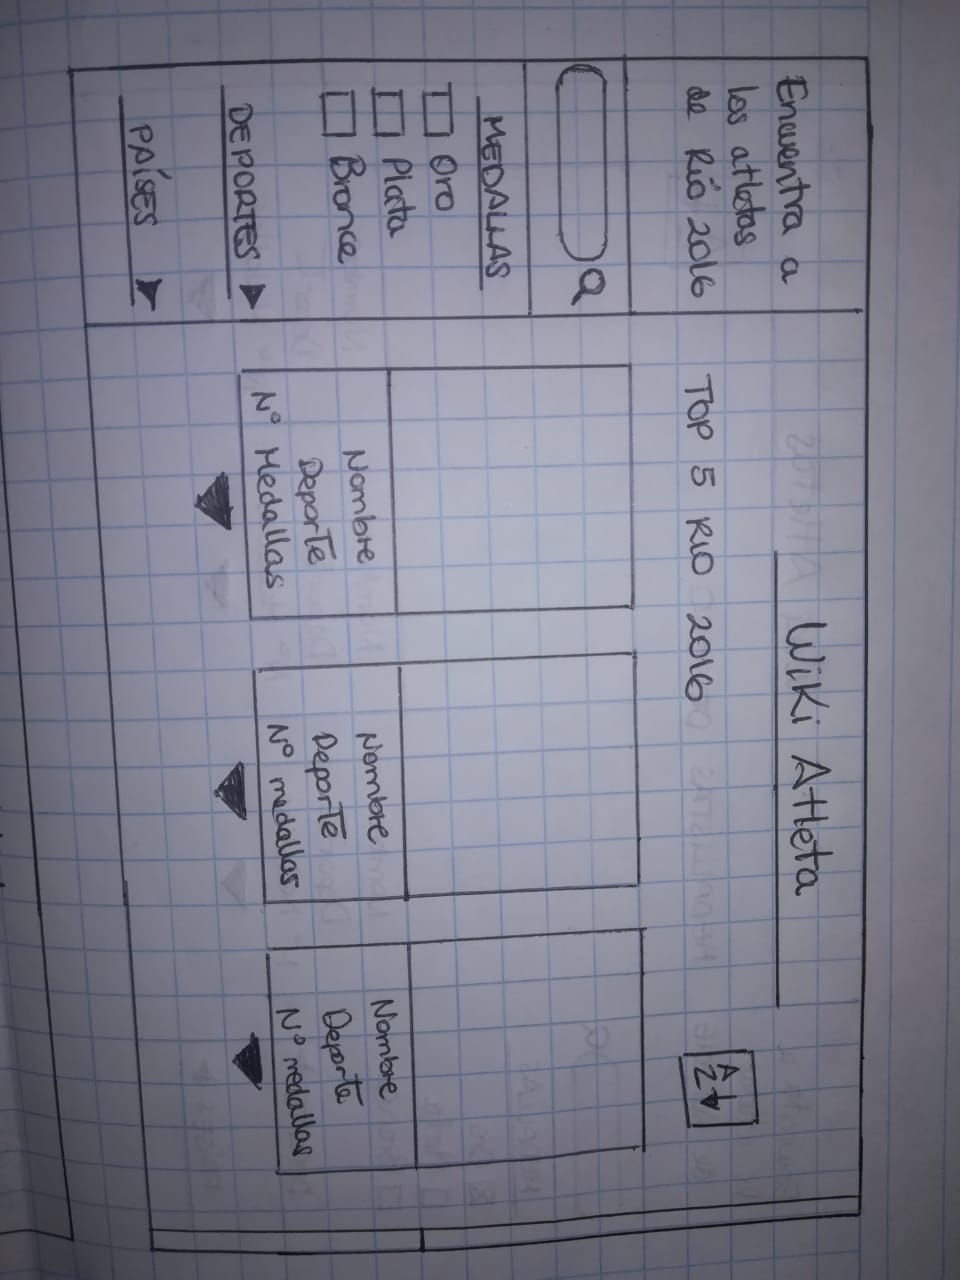 Encuentra a
los atletas
de Rió 2016
MEDALLAS
Oro
Plata
Bronce
DEPORTES
PAÍSES
Wiki Atleta
TOP 5 RIO 2016
A
Z
Nombre
Deporte
N° Medallas
Nombre
Deporte
N° medallas
Nombre
Deporte
N° medallas